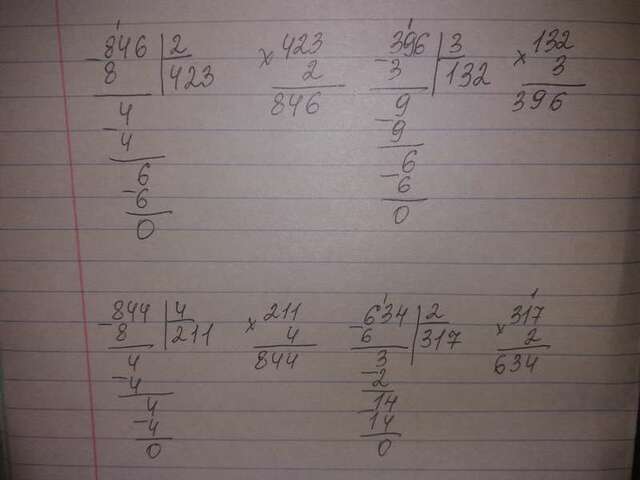 846 | 2    × 423    396 | 3    × 132
- 8 | 423    2    - 3 | 132    3
4    846    9    396
- 4    - 9
6    6
- 6    - 6
0    0
844 | 4    × 211    634 | 2    × 317
- 8 | 211    4    - 6 | 317    2
4    844    3    634
- 4    - 2
4    14
- 4    - 14
0    0